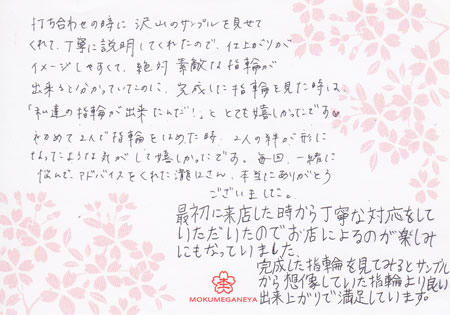 打ち合わせの時に沢山のサンプルを見せて
くれて、丁寧に説明してくれたので、仕上がりが
イメージしやすくて、絶対素敵な指輪が
出来るとわかっていたのに、完成した指輪を見た時は、
「私達の指輪が出来たんだ!」と、とても嬉しかったです♥
初めて2人で指輪をはめた時、2人の絆が形に
なったような気がして嬉しかったです。毎回、一緒に
悩んで、アドバイスをくれた瀧口さん、本当にありがとう
ございました。
最初に来店した時から丁寧な対応をして
いただいたのでお店によるのが楽しみ
にもなっていました。
完成した指輪を見てみるとサンプル
から想像していた指輪より良い
出来上がりで満足しています。
MOKUMEGANEYA